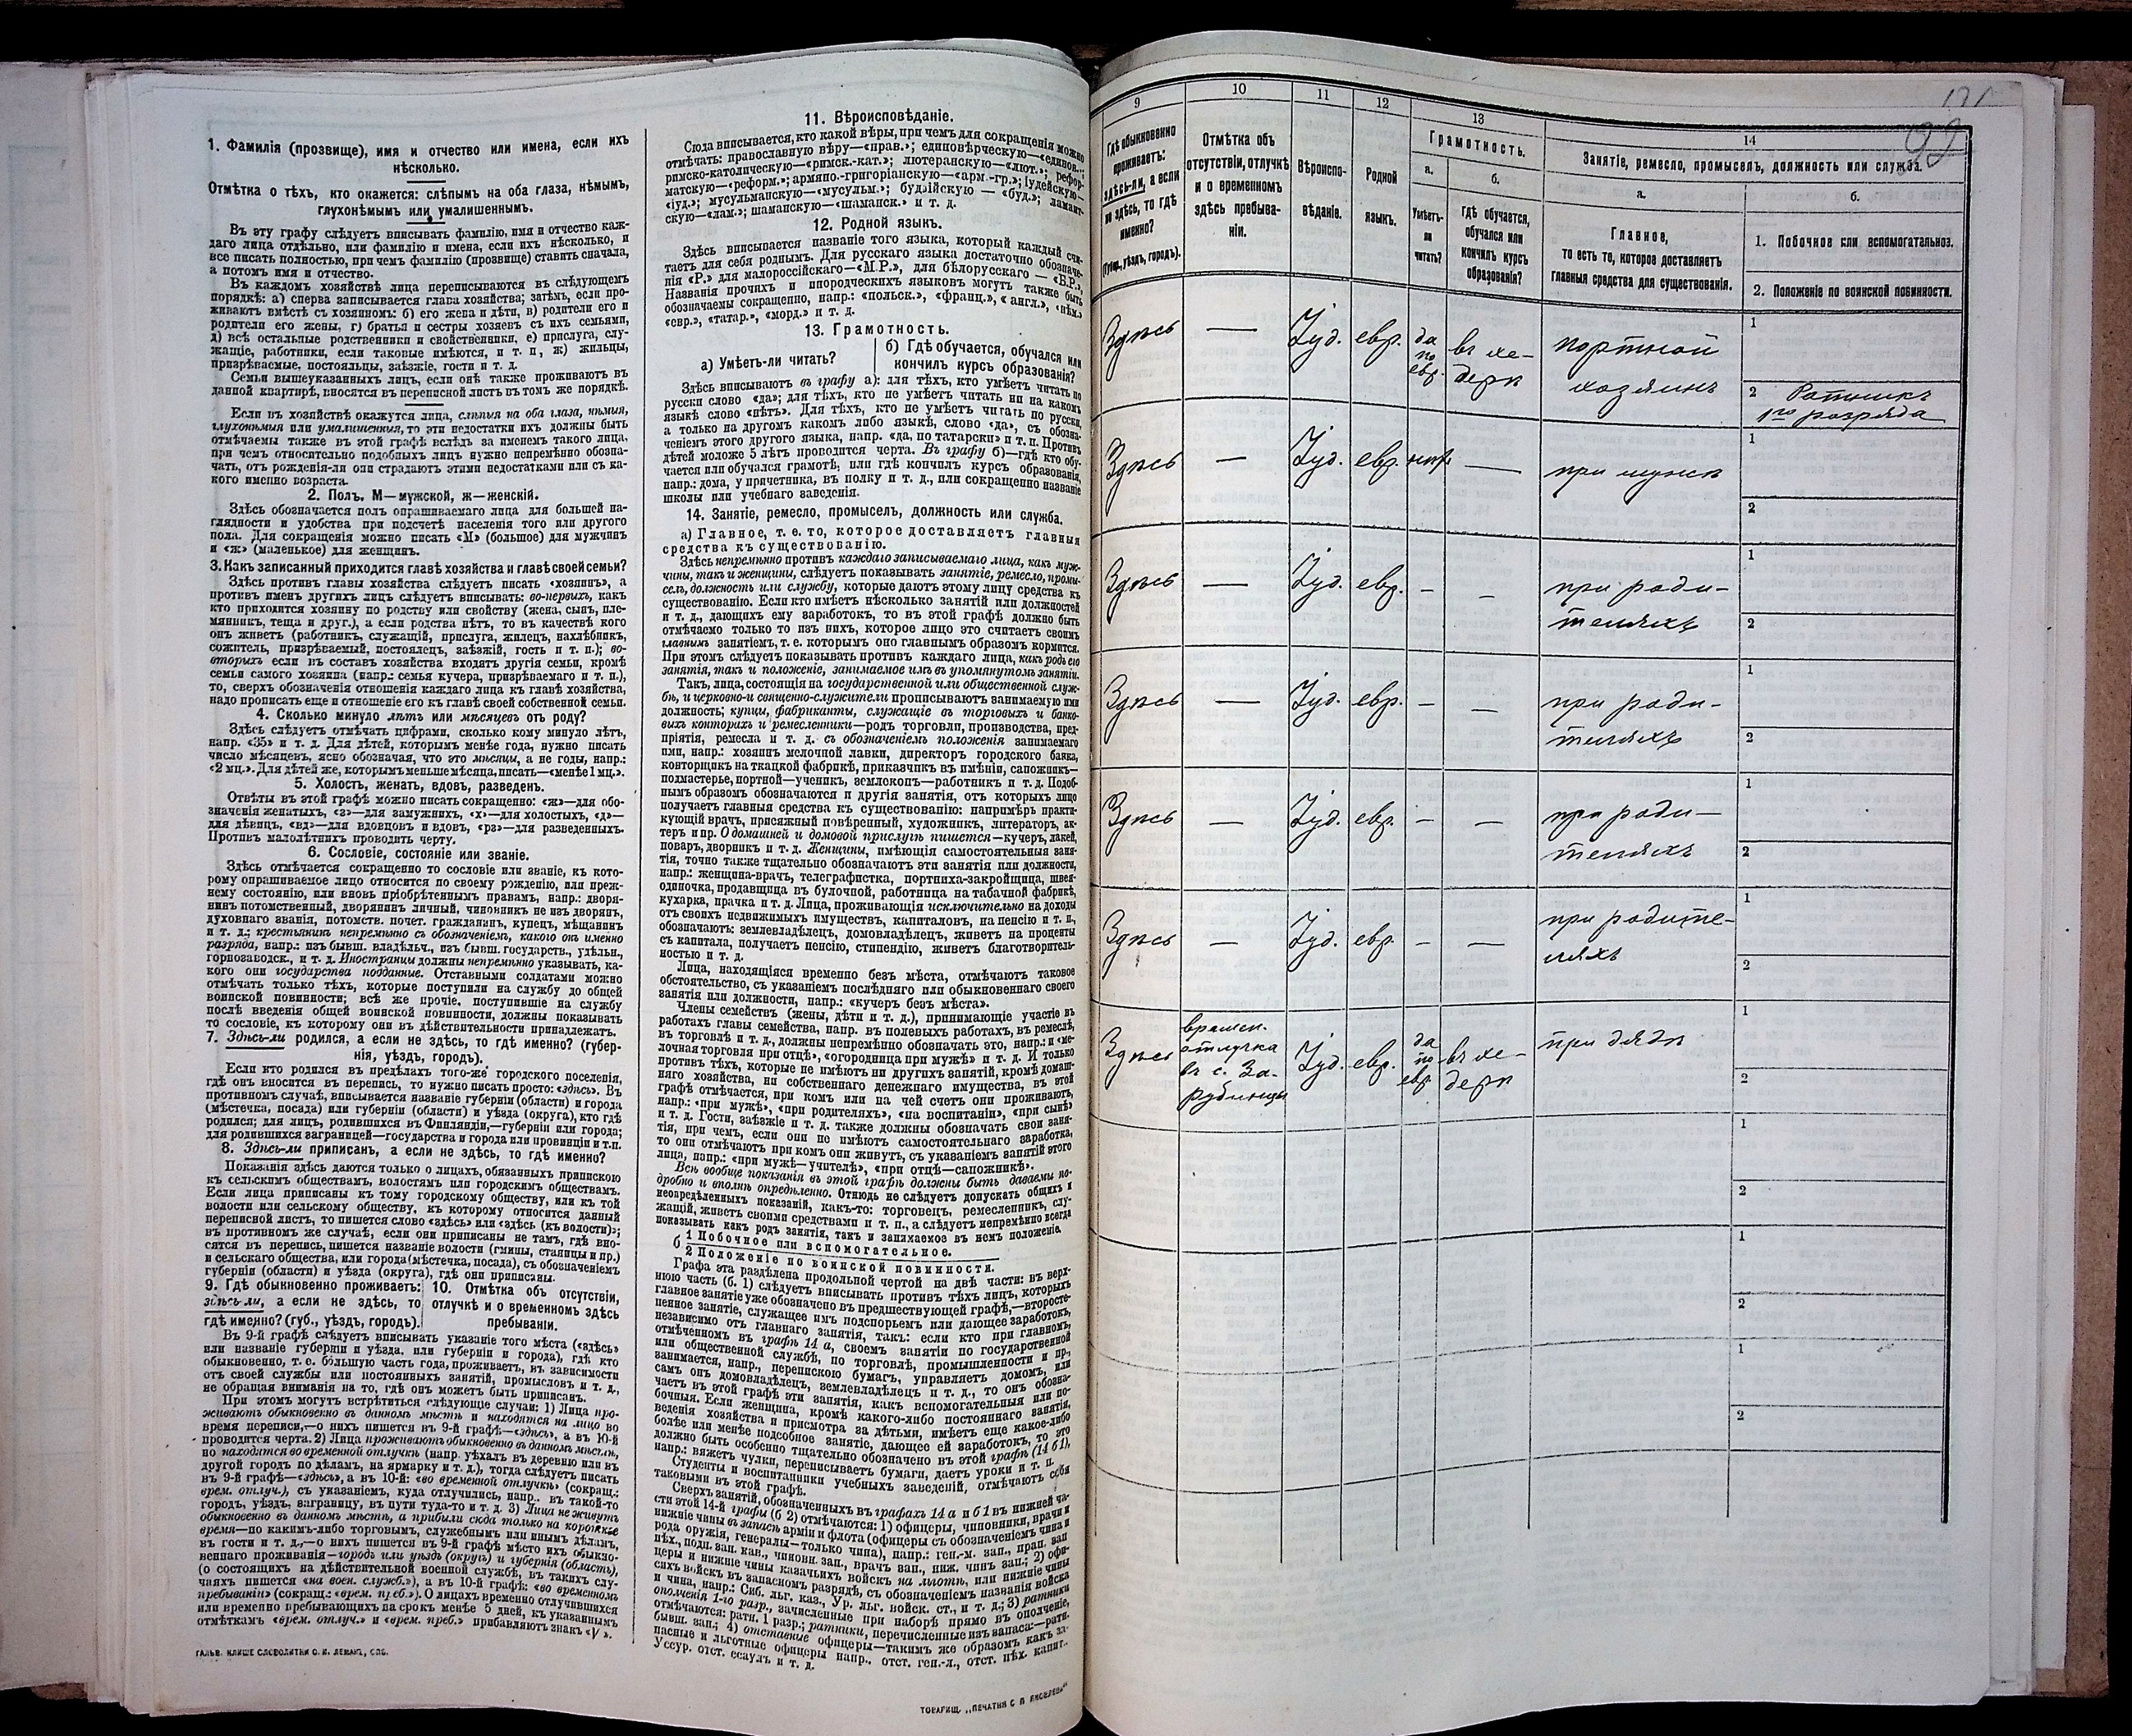 1. Фамилія (прозвище), имя и отчество или имена, если ихъ
нѣсколько.
Отмѣтка о тѣхъ, кто окажется: слѣпымъ на оба глаза, нѣмымъ,
глухонѣмымъ или умалишеннымъ.
Въ эту графу слѣдуетъ вписывать фамилію, имя и отчество каж-
даго лица отдѣльно, или фамилію и имена, если ихъ нѣсколько, и
все писать полностью, при чемъ фамилію (прозвище) ставить сначала,
а потомъ имя и отчество.
Въ каждомъ хозяйствѣ лица переписываются въ слѣдующемъ
порядкѣ: а) сперва записывается глава хозяйства; затѣмъ, если про-
живаютъ вмѣстѣ съ хозяиномъ: б) его жена и дѣти, в) родители его и
родители его жены, г) братья и сестры хозяевъ съ ихъ семьями,
д) всѣ остальные родственники и свойственники, е) прислуга, слу-
жащіе, работники, если таковые имѣются, и т. п., ж) жильцы,
призрѣваемые, постояльцы, заѣзжіе, гости и т. д.
Семьи вышеуказанныхъ лицъ, если онѣ также проживаютъ въ
данной квартирѣ, вносятся въ переписной листъ въ томъ же порядкѣ.
Если въ хозяйствѣ окажутся лица, слѣпыя на оба глаза, нѣмыя,
глухонѣмыя или умалишенныя, то эти недостатки ихъ должны быть
отмѣчаемы также въ этой графѣ вслѣдъ за именемъ такого лица,
при чемъ относительно подобныхъ лицъ нужно непремѣнно обозна-
чать, отъ рожденія-ли они страдаютъ этими недостатками или съ ка-
кого именно возраста.
2. Полъ. М—мужской, ж—женскій.
Здѣсь обозначается полъ опрашиваемаго лица для большей на-
глядности и удобства при подсчетѣ населенія того или другого
пола. Для сокращенія можно писать «М» (большое) для мужчинъ
и «ж» (маленькое) для женщинъ.
3. Какъ записанный приходится главѣ хозяйства и главѣ своей семьи?
Здѣсь противъ главы хозяйства слѣдуетъ писать «хозяинъ», а
противъ именъ другихъ лицъ слѣдуетъ вписывать: во-первыхъ, какъ
кто приходится хозяину по родству или свойству (жена, сынъ, пле-
мянникъ, теща и друг.), а если родства нѣтъ, то въ качествѣ кого
онъ живетъ (работникъ, служащій, прислуга, жилецъ, нахлѣбникъ,
сожитель, призрѣваемый, постоялецъ, заѣзжій, гость и т. п.); во-
вторыхъ если въ составъ хозяйства входятъ другія семьи, кромѣ
семьи самого хозяина (напр.: семья кучера, призрѣваемаго и т. п.),
то, сверхъ обозначенія отношенія каждаго лица къ главѣ хозяйства,
надо прописать еще и отношеніе его къ главѣ своей собственной семьи.
4. Сколько минуло лѣтъ или мѣсяцевъ отъ роду?
Здѣсь слѣдуетъ отмѣчать цифрами, сколько кому минуло лѣтъ,
напр. «35» и т. д. Для дѣтей, которымъ менѣе года, нужно писать
число мѣсяцевъ, ясно обозначая, что это мѣсяцы, а не годы, напр.:
«2 мц.». Для дѣтей же, которымъ меньше мѣсяца, писать—«менѣе 1 мц.».
5. Холостъ, женатъ, вдовъ, разведенъ.
Отвѣты въ этой графѣ можно писать сокращенно: «ж»—для обо-
значенія женатыхъ, «з»—для замужнихъ, «х»—для холостыхъ, «д»—
для дѣвицъ, «вд»—для вдовцовъ и вдовъ, «рз»—для разведенныхъ.
Противъ малолѣтнихъ проводить черту.
6. Сословіе, состояніе или званіе.
Здѣсь отмѣчается сокращенно то сословіе или званіе, къ кото-
рому опрашиваемое лицо относится по своему рожденію, или преж-
нему состоянію, или вновь пріобрѣтеннымъ правамъ, напр.: дворя-
нинъ потомственный, дворянинъ личный, чиновникъ не изъ дворянъ,
духовнаго званія, потомств. почет. гражданинъ, купецъ, мѣщанинъ
и т. д.; крестьянинъ непремѣнно съ обозначеніемъ, какого онъ именно
разряда, напр.: изъ бывш. владѣльч., изъ бывш. государств., удѣльн.,
горнозаводск., и т. д. Иностранцы должны непремѣнно указывать, ка-
кого они государства подданные. Отставными солдатами можно
отмѣчать только тѣхъ, которые поступили на службу до общей
воинской повинности; всѣ же прочіе, поступившіе на службу
послѣ введенія общей воинской повинности, должны показывать
то сословіе, къ которому они въ дѣйствительности принадлежатъ.
7. Здѣсь-ли родился, а если не здѣсь, то гдѣ именно? (губер-
нія, уѣздъ, городъ).
Если кто родился въ предѣлахъ того-же городского поселенія,
гдѣ онъ вносится въ перепись, то нужно писать просто: «здѣсь». Въ
противномъ случаѣ, вписывается названіе губерніи (области) и города
(мѣстечка, посада) или губерніи (области) и уѣзда (округа), кто гдѣ
родился; для лицъ, родившихся въ Финляндіи,—губерніи или города;
для родившихся заграницей—государства и города или провинціи и т.п.
8. Здѣсь-ли приписанъ, а если не здѣсь, то гдѣ именно?
Показанія здѣсь даются только о лицахъ, обязанныхъ припискою
къ сельскимъ обществамъ, волостямъ или городскимъ обществамъ.
Если лица приписаны къ тому городскому обществу, или къ той
волости или сельскому обществу, къ которому относится данный
переписной листъ, то пишется слово «здѣсь» или «здѣсь (къ волости)»;
въ противномъ же случаѣ, если они приписаны не тамъ, гдѣ вно-
сятся въ перепись, пишется названіе волости (гмины, станицы и пр.)
и сельскаго общества, или города (мѣстечка, посада), съ обозначеніемъ
губерніи (области) и уѣзда (округа), гдѣ они приписаны.
9. Гдѣ обыкновенно проживаетъ:
здѣсь-ли, а если не здѣсь, то
гдѣ именно? (губ., уѣздъ, городъ).
10. Отмѣтка объ отсутствіи,
отлучкѣ и о временномъ здѣсь
пребываніи.
Въ 9-й графѣ слѣдуетъ вписывать указаніе того мѣста («здѣсь»
или названіе губерніи и уѣзда, или губерніи и города), гдѣ кто
обыкновенно, т. е. бóльшую часть года, проживаетъ, въ зависимости
отъ своей службы или постоянныхъ занятій, промысловъ и т. д.,
не обращая вниманія на то, гдѣ онъ можетъ быть приписанъ.
При этомъ могутъ встрѣтиться слѣдующіе случаи: 1) Лица про-
живаютъ обыкновенно въ данномъ мѣстѣ и находятся на лицо во
время переписи,—о нихъ пишется въ 9-й графѣ—«здѣсь», а въ 10-й
проводится черта. 2) Лица проживаютъ обыкновенно въ данномъ мѣстѣ,
но находятся во временной отлучкѣ (напр. уѣхалъ въ деревню или въ
другой городъ по дѣламъ, на ярмарку и т. д.), тогда слѣдуетъ писать
въ 9-й графѣ—«здѣсь», а въ 10-й: «во временной отлучкѣ» (сокращ.:
врем. отлуч.), съ указаніемъ, куда отлучились, напр.. въ такой-то
городъ, уѣздъ, заграницу, въ пути туда-то и т. д. 3) Лица не живутъ
обыкновенно въ данномъ мѣстѣ, а прибыли сюда только на короткое
время—по какимъ-либо торговымъ, служебнымъ или инымъ дѣламъ,
въ гости и т. д.,—о нихъ пишется въ 9-й графѣ мѣсто ихъ обыкно-
веннаго проживанія—городъ или уѣздъ (округъ) и губернія (область),
(о состоящихъ на дѣйствительной военной службѣ, въ такихъ слу-
чаяхъ пишется «на воен. служб.»), а въ 10-й графѣ: «во временномъ
пребываніи» (сокращ.: «врем. преб.»). О лицахъ временно отлучившихся
или временно пребывающихъ на срокъ менѣе 5 дней, къ указаннымъ
отмѣткамъ «врем. отлуч.» и «врем. преб.» прибавляютъ знакъ «V».
ГАЛЬВ. КЛИШЕ СЛОВОЛИТНИ О. И. ЛЕМАНЪ, СПБ.
11. Вѣроисповѣданіе.
Сюда вписывается, кто какой вѣры, при чемъ для сокращенія можно
отмѣчать: православную вѣру—«прав.»; единовѣрческую—«единов.»;
римско-католическую—«римск.-кат.»; лютеранскую—«лют.»; рефор-
матскую—«реформ.»; армяно-григоріанскую—«арм.-гр.»; іудейскую—
«іуд.»; мусульманскую—«мусульм.»; буддійскую — «буд.»; ламаит-
скую—«лам.»; шаманскую—«шаманск.» и т. д.
12. Родной языкъ.
Здѣсь вписывается названіе того языка, который каждый счи-
таетъ для себя роднымъ. Для русскаго языка достаточно обозначе-
нія «Р.» для малороссійскаго—«М.Р.», для бѣлорусскаго — «Б.Р.».
Названія прочихъ и инородческихъ языковъ могутъ также быть
обозначаемы сокращенно, напр.: «польск.», «франц.», «англ.», «нѣм.»
«евр.», «татар.», «морд.» и т. д.
13. Грамотность.
а) Умѣетъ-ли читать?
б) Гдѣ обучается, обучался или
кончилъ курсъ образованія?
Здѣсь вписываютъ въ графу а): для тѣхъ, кто умѣетъ читать по
русски слово «да»; для тѣхъ, кто не умѣетъ читать ни на какомъ
языкѣ слово «нѣтъ». Для тѣхъ, кто не умѣетъ читать по русски,
а только на другомъ какомъ либо языкѣ, слово «да», съ обозна-
ченіемъ этого другого языка, напр. «да, по татарски» и т. п. Противъ
дѣтей моложе 5 лѣтъ проводится черта. Въ графу б)—гдѣ кто обу-
чается или обучался грамотѣ, или гдѣ кончилъ курсъ образованія,
напр.: дома, у причетника, въ полку и т. д., или сокращенно названіе
школы или учебнаго заведенія.
14. Занятіе, ремесло, промыселъ, должность или служба.
а) Главное, т. е. то, которое доставляетъ главныя
средства къ существованію.
Здѣсь непремѣнно противъ каждаго записываемаго лица, какъ муж-
чины, такъ и женщины, слѣдуетъ показывать занятіе, ремесло, промы-
селъ, должность или службу, которые даютъ этому лицу средства къ
существованію. Если кто имѣетъ нѣсколько занятій или должностей
и т. д., дающихъ ему заработокъ, то въ этой графѣ должно быть
отмѣчаемо только то изъ нихъ, которое лицо это считаетъ своимъ
главнымъ занятіемъ, т. е. которымъ оно главнымъ образомъ кормится.
При этомъ слѣдуетъ показывать противъ каждаго лица, какъ родъ его
занятія, такъ и положеніе, занимаемое имъ въ упомянутомъ занятіи.
Такъ, лица, состоящія на государственной или общественной служ-
бѣ, и церковно-и священно-служители прописываютъ занимаемую ими
должность; купцы, фабриканты, служащіе въ торговыхъ и банко-
выхъ конторахъ и ремесленники—родъ торговли, производства, пред-
пріятія, ремесла и т. д. съ обозначеніемъ положенія занимаемаго
ими, напр.: хозяинъ мелочной лавки, директоръ городского банка,
конторщикъ на ткацкой фабрикѣ, приказчикъ въ имѣніи, сапожникъ—
подмастерье, портной—ученикъ, землекопъ—работникъ и т. д. Подоб-
нымъ образомъ обозначаются и другія занятія, отъ которыхъ лицо
получаетъ главныя средства къ существованію: напримѣръ практи-
кующій врачъ, присяжный повѣренный, художникъ, литераторъ, ак-
теръ и пр. О домашней и домовой прислугѣ пишется—кучеръ, лакей,
поваръ, дворникъ и т. д. Женщины, имѣющія самостоятельныя заня-
тія, точно также тщательно обозначаютъ эти занятія или должности,
напр.: женщина-врачъ, телеграфистка, портниха-закройщица, швея-
одиночка, продавщица въ булочной, работница на табачной фабрикѣ,
кухарка, прачка и т. д. Лица, проживающія исключительно на доходы
отъ своихъ недвижимыхъ имуществъ, капиталовъ, на пенсію и т. п.,
обозначаютъ: землевладѣлецъ, домовладѣлецъ, живетъ на проценты
съ капитала, получаетъ пенсію, стипендію, живетъ благотворитель-
ностью и т. д.
Лица, находящіяся временно безъ мѣста, отмѣчаютъ таковое
обстоятельство, съ указаніемъ послѣдняго или обыкновеннаго своего
занятія или должности, напр.: «кучеръ безъ мѣста».
Члены семействъ (жены, дѣти и т. д.), принимающіе участіе въ
работахъ главы семейства, напр. въ полевыхъ работахъ, въ ремеслѣ,
въ торговлѣ и т. д., должны непремѣнно обозначать это, напр.: «ме-
лочная торговля при отцѣ», «огородница при мужѣ» и т. д. И только
противъ тѣхъ, которые не имѣютъ ни другихъ занятій, кромѣ домаш-
няго хозяйства, ни собственнаго денежнаго имущества, въ этой
графѣ отмѣчается, при комъ или на чей счетъ они проживаютъ,
напр.: «при мужѣ», «при родителяхъ», «на воспитаніи», «при сынѣ»
и т. д. Гости, заѣзжіе и т. д. также должны обозначать свои заня-
тія, при чемъ, если они не имѣютъ самостоятельнаго заработка,
то они отмѣчаютъ при комъ они живутъ, съ указаніемъ занятій этого
лица, напр.: «при мужѣ—учителѣ», «при отцѣ—сапожникѣ».
Всѣ вообще показанія въ этой графѣ должны быть даваемы по-
дробно и вполнѣ опредѣленно. Отнюдь не слѣдуетъ допускать общихъ и
неопредѣленныхъ показаній, какъ-то: торговецъ, ремесленникъ, слу-
жащій, живетъ своими средствами и т. п., а слѣдуетъ непремѣнно всегда
показывать какъ родъ занятія, такъ и занимаемое въ немъ положеніе.
б 1 Побочное или вспомогательное.
2 Положеніе по воинской повинности.
Графа эта раздѣлена продольной чертой на двѣ части: въ верх-
нюю часть (б. 1) слѣдуетъ вписывать противъ тѣхъ лицъ, которыхъ
главное занятіе уже обозначено въ предшествующей графѣ,—второсте-
пенное занятіе, служащее имъ подспорьемъ или дающее заработокъ,
независимо отъ главнаго занятія, такъ: если кто при главномъ,
отмѣченномъ въ графѣ 14 а, своемъ занятіи по государственной
или общественной службѣ, по торговлѣ, промышленности и пр.,
занимается, напр., перепискою бумагъ, управляетъ домомъ, или
самъ онъ домовладѣлецъ, землевладѣлецъ и т. д., то онъ обозна-
чаетъ въ этой графѣ эти занятія, какъ вспомогательныя или по-
бочныя. Если женщина, кромѣ какого-либо постояннаго занятія,
веденія хозяйства и присмотра за дѣтьми, имѣетъ еще какое-либо
болѣе или менѣе подсобное занятіе, дающее ей заработокъ, то это
должно быть особенно тщательно обозначено въ этой графѣ (14 б 1),
напр.: вяжетъ чулки, переписываетъ бумаги, даетъ уроки и т. п.
Студенты и воспитанники учебныхъ заведеній, отмѣчаютъ себя
таковыми въ этой графѣ.
Сверхъ занятій, обозначенныхъ въ графахъ 14 а и б 1 въ нижней ча-
сти этой 14-й графы (б 2) отмѣчаются: 1) офицеры, чиновники, врачи и
нижніе чины въ запасѣ арміи и флота (офицеры съ обозначеніемъ чина и
рода оружія, генералы—только чина), напр.: ген.-м. зап., прап. зап
пѣх., подп. зап. кав., чиновн. зап., врачъ зап., ниж. чинъ зап.; 2) офи-
церы и нижніе чины казачьихъ войскъ на льготѣ, или нижніе чины
сихъ войскъ въ запасномъ разрядѣ, съ обозначеніемъ названія войска
и чина, напр.: Сиб. льг. каз., Ур. льг. войск. ст., и т. д.; 3) ратники
ополченія 1-го разр., зачисленные при наборѣ прямо въ ополченіе,
отмѣчаются: ратн. 1 разр.; ратники, перечисленные изъ запаса:—ратн.
бывш. зап.; 4) отставные офицеры—такимъ же образомъ какъ за-
пасные и льготные офицеры напр.. отст. ген.-л., отст. пѣх. капит..
Уссур. отст. есаулъ и т. д.
ТОВАРИЩ. „ПЕЧАТНЯ С. П. ЯКОВЛЕВА“
92
9
10
11
12
13
14
Гдѣ обыкновенно
проживаетъ:
здѣсь-ли, а если
не здѣсь, то гдѣ
именно?
(Губ., уѣздъ, городъ).
Отмѣтка объ
отсутствіи, отлучкѣ
и о временномъ
здѣсь пребыва-
ніи.
Вѣроиспо-
вѣданіе.
Родной
языкъ.
Грамотность.
а.
Умѣетъ-
ли
читать?
б.
Гдѣ обучается,
обучался или
кончилъ курсъ
образованія?
Занятіе, ремесло, промыселъ, должность или служба.
а.
Главное,
то есть то, которое доставляетъ
главныя средства для существованія.
б.
1. Побочное или вспомогательное.
2. Положеніе по воинской повинности.
Здѣсь — Іуд. евр. да
по
евр.
въ хе-
дерѣ
портной
хозяинъ
1
2 Ратникъ
1го разряда
Здѣсь — Іуд. евр. нѣтъ — при мужѣ
1
2
Здѣсь — Іуд. евр. – – при роди-
теляхъ
1
2
Здѣсь — Іуд. евр. – – при роди-
теляхъ
1
2
Здѣсь — Іуд. евр. – – при роди-
теляхъ
1
2
Здѣсь — Іуд. евр. – – при родите-
ляхъ
1
2
Здѣсь
времен.
отлучка
въ с. За-
рубинцы
Іуд. евр. да
по
евр
въ хе-
дерѣ
при дядѣ
1
2
1
2
1
2
1
2